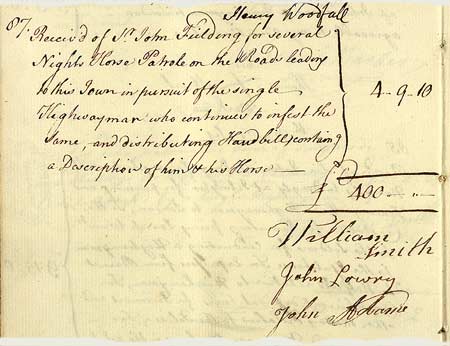 Henry Woodfall
87. Receivd of Sr. John Fielding for several
Nights Horse Patrole on the Roads leading
to this Town in pursuit of the single
Highwayman who continues to infest the
same, and distributing Handbills containg
a Description of him & his Horse —
4-9-10
£ 400 - „ -
William
Smith
John Lowry
John Adams